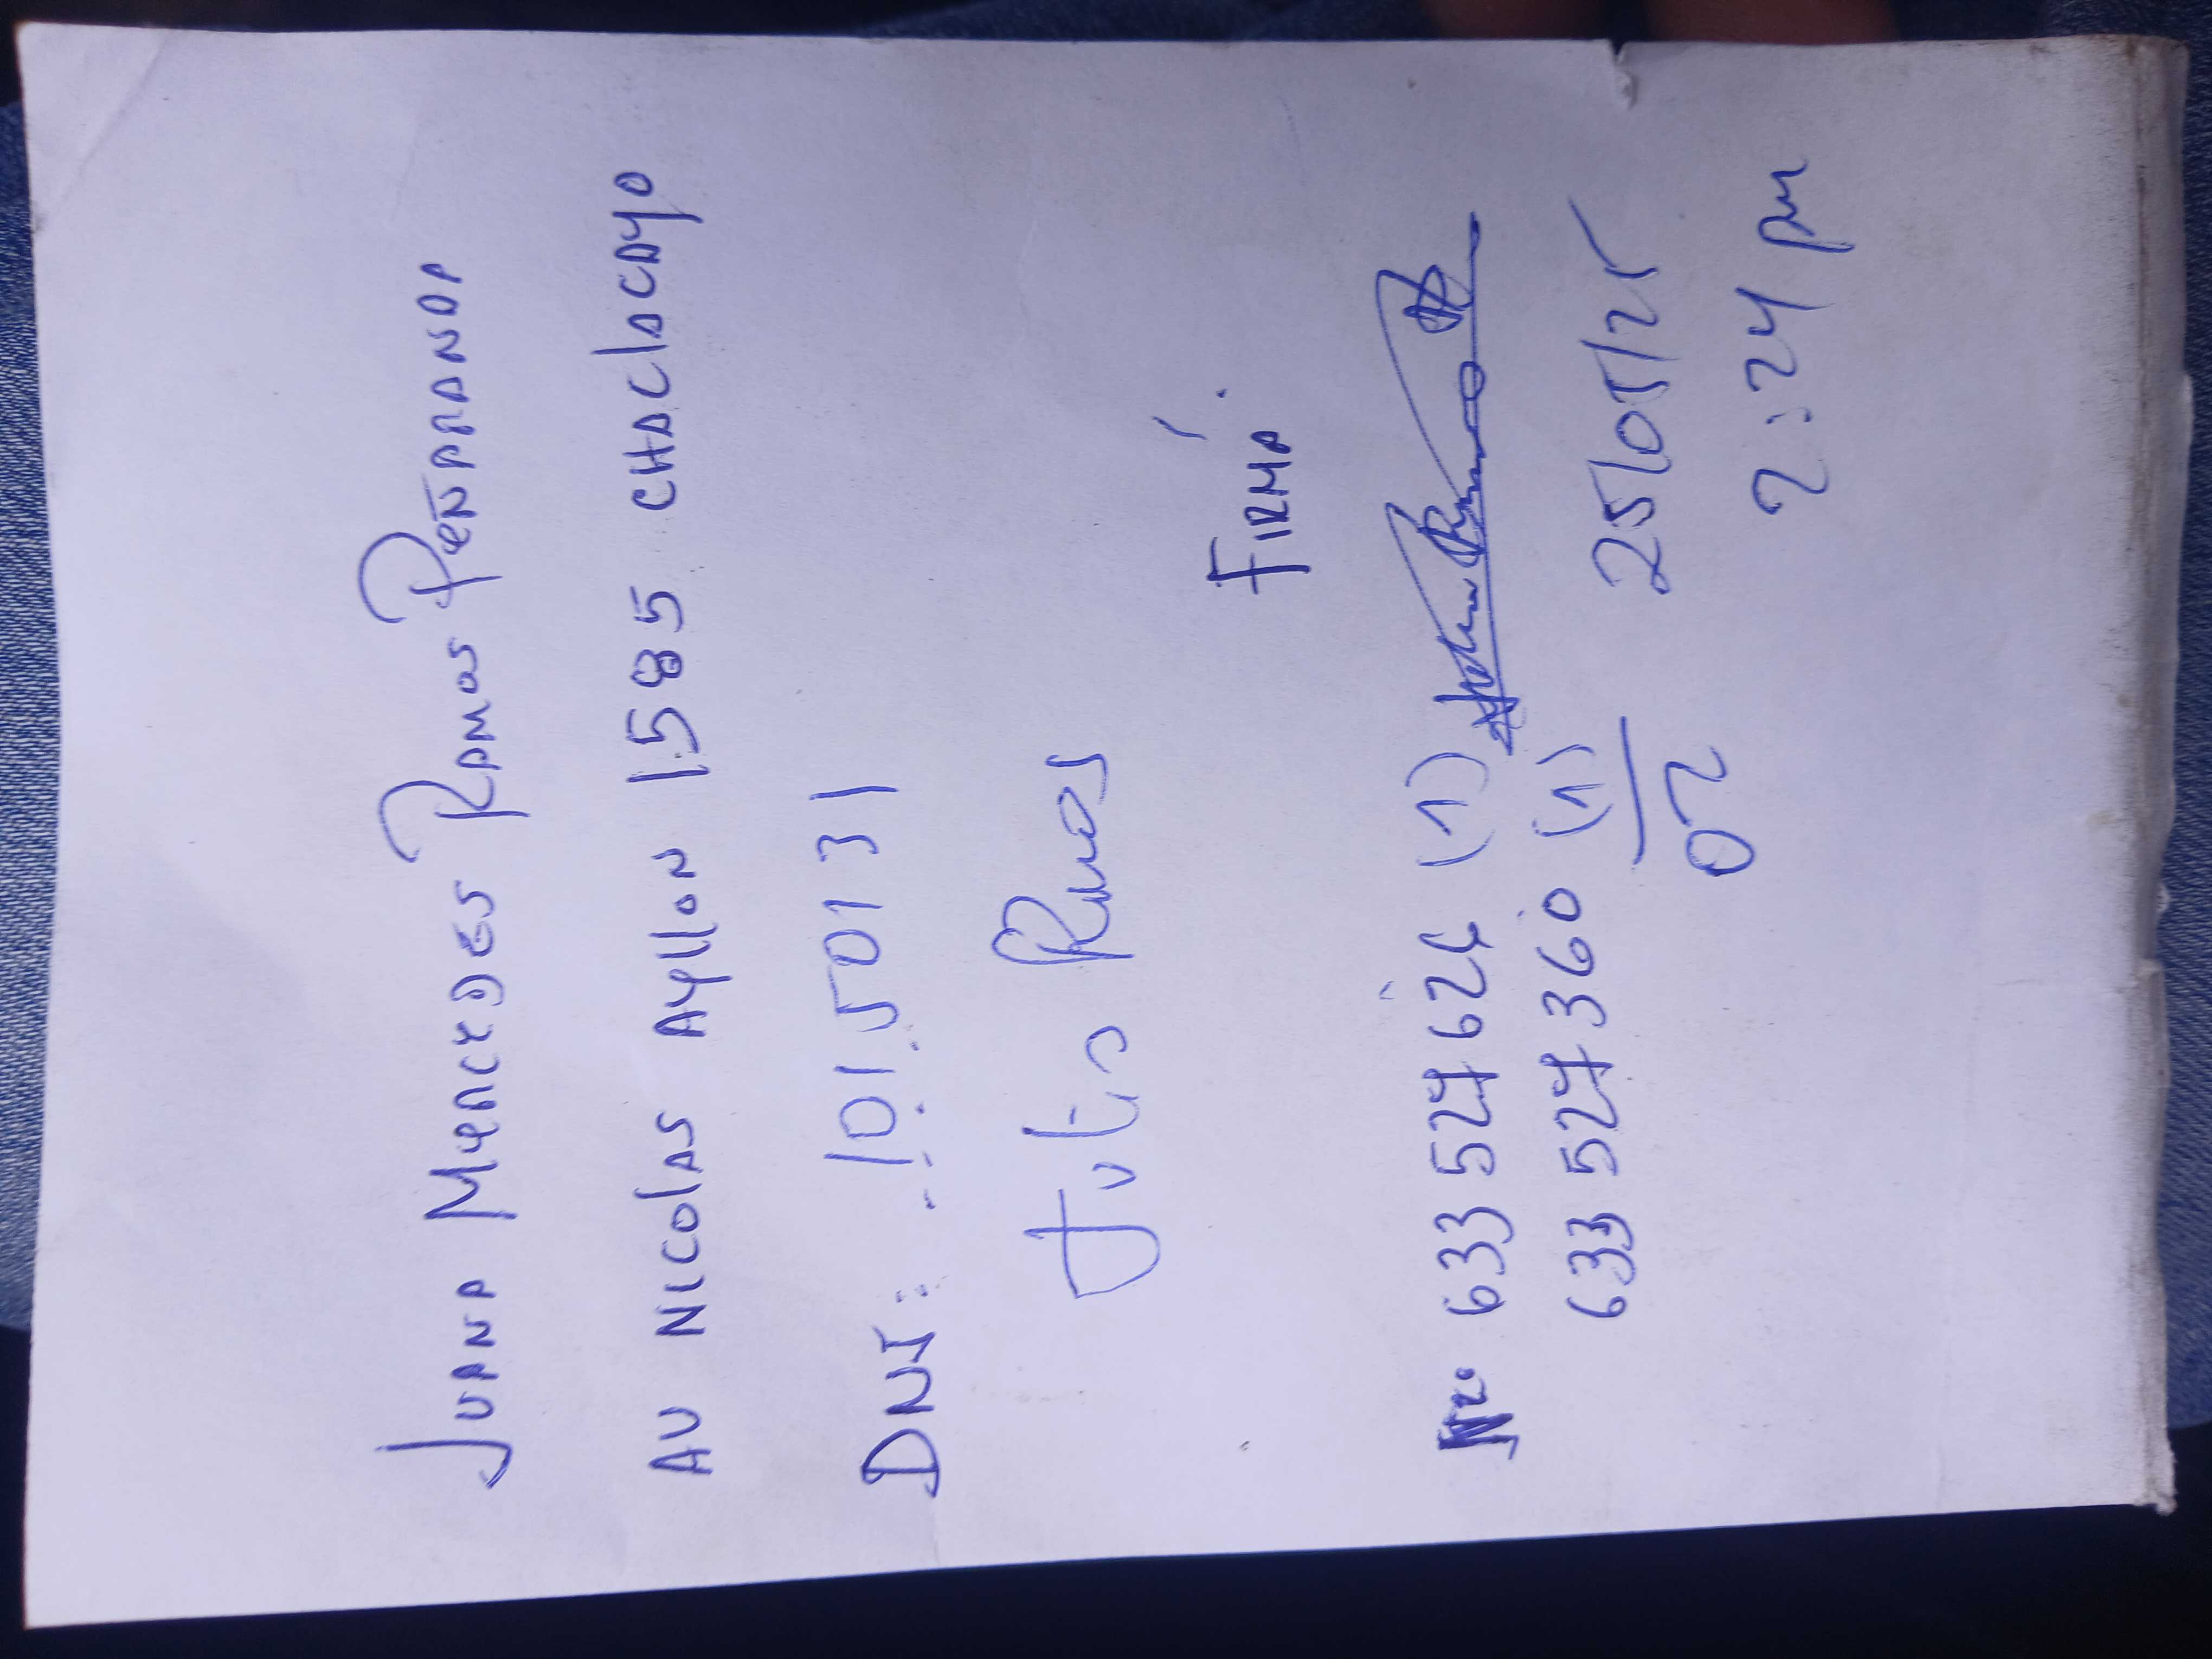 JUANA MERCEDES RAMOS PEÑARANDA
AV NICOLAS AYLLON 1585 CHACLACAYO
DNI: 10150131
Julio Ramos
FIRMA:
Nº 633 527 624 (1)
633 527 360 (1) 25/05/25
02 2:24 pm